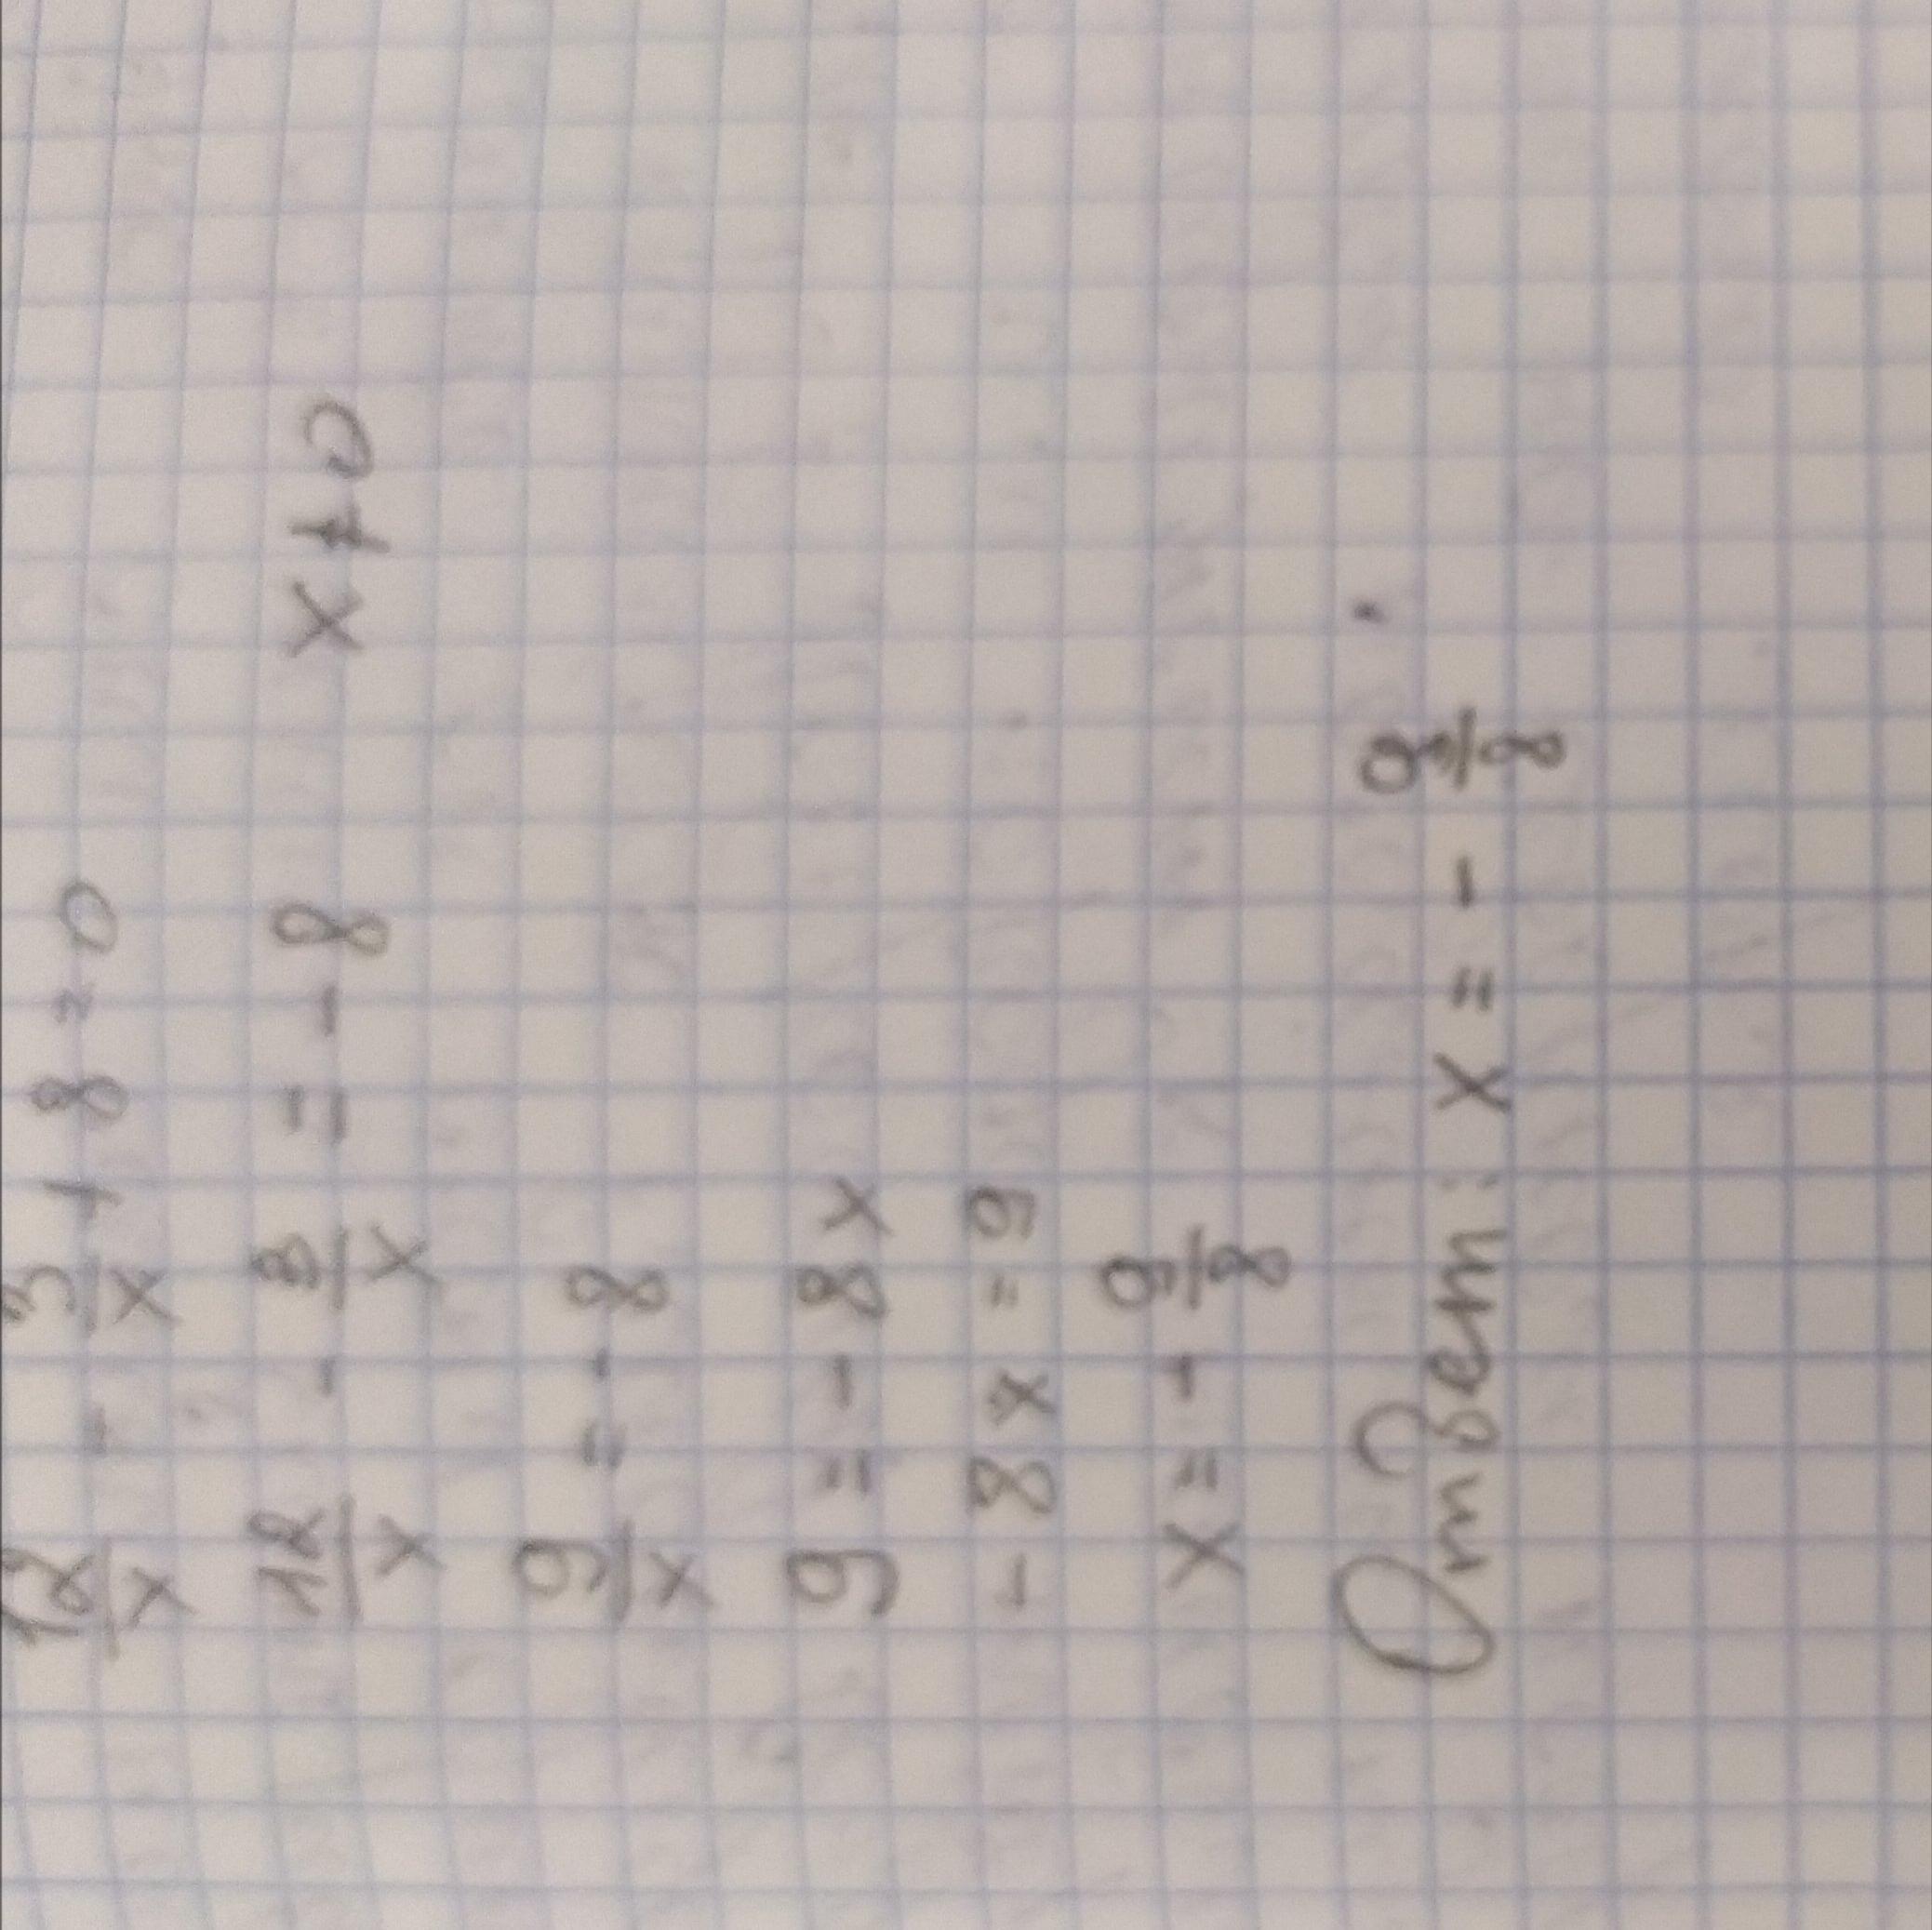 12/x - 3/x + 8 = 0
12/x - 3/x = - 8 x ≠ 0
9/x = - 8
9 = - 8x
- 8x = 9
x = - 9/8
Ответ: x = - 9/8.